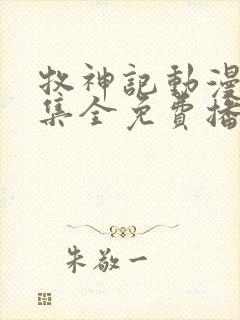 牧神記動漫
集全免費播
朱敬一